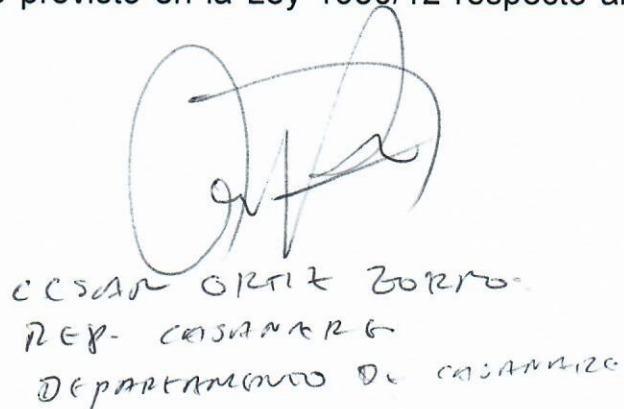 previsto en la Ley 1580/12 respecto al
CESAR ORTIZ ZORRO
REP. CASANARE
DEPARTAMENTO DE CASANARE